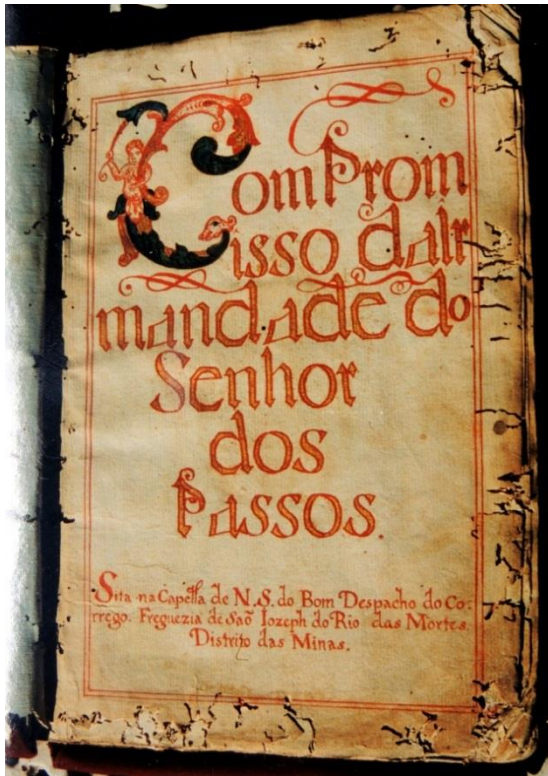 ComProm
isso dalr
mandade do
Senhor
dos
Passos.
Sita na Capella de N. S. do Bom Despacho do Co-
rrego. Freguezia de Saõ Iozeph do Rio das Mortes
Distrito das Minas.